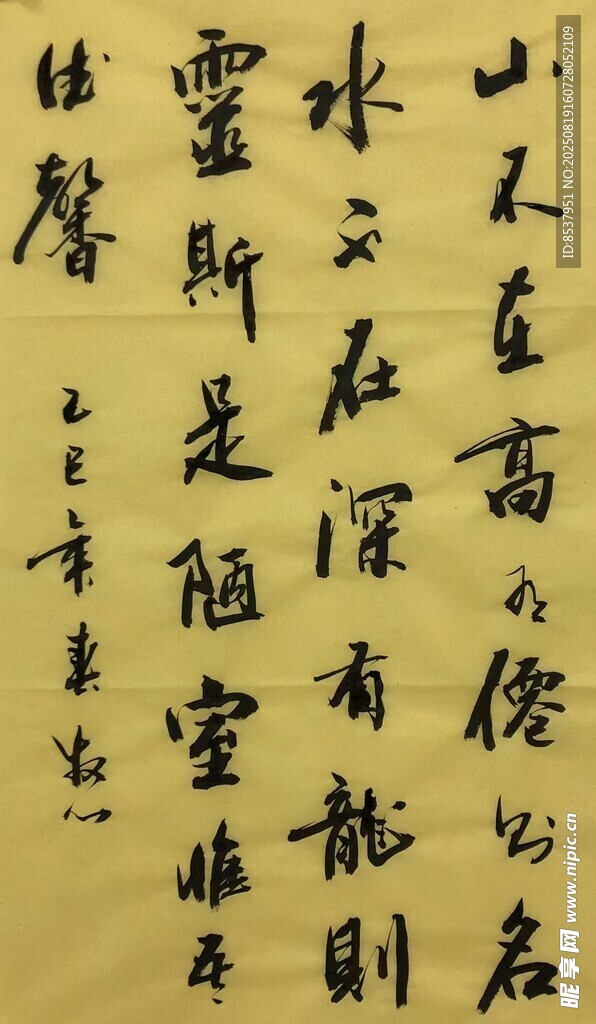 山不在高有僊则名
水不在深有龍則
靈斯是陋室惟吾
德馨
乙巳年春牧心
ID:8537951 NO:20250819160728052109
昵享网 www.nipic.cn